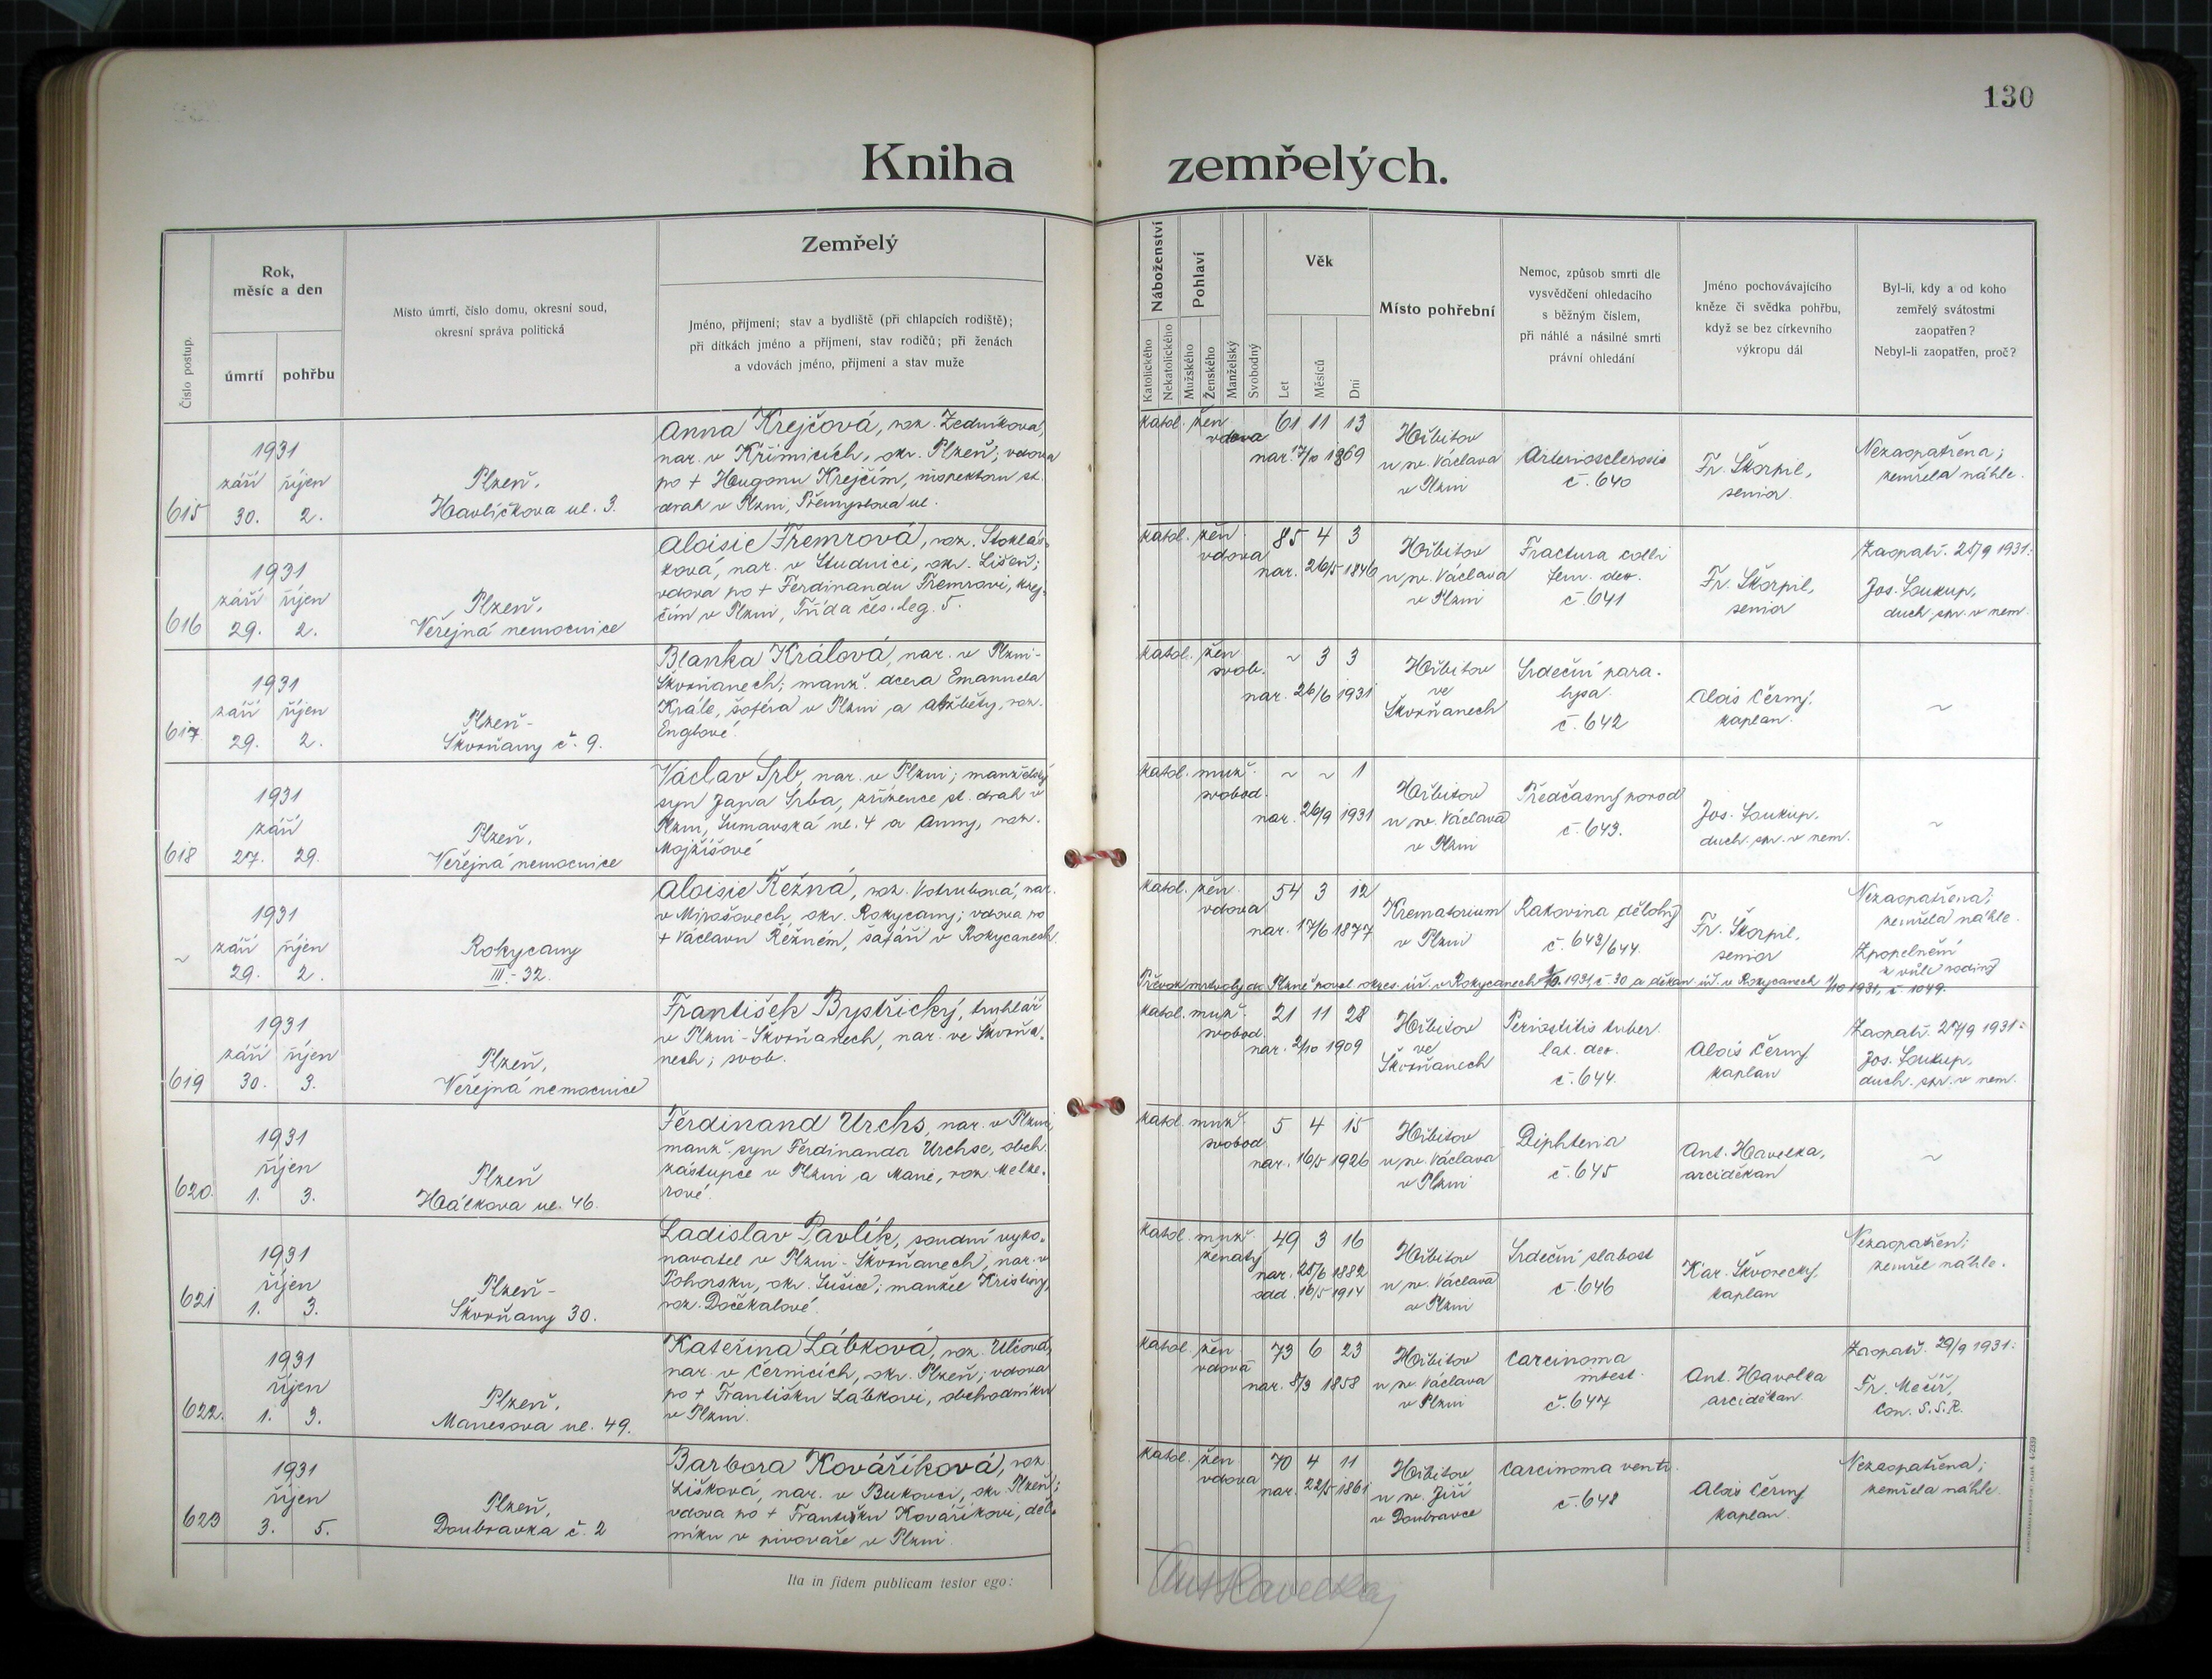 130
Kniha zemřelých.
Číslo postup.
Rok,
měsíc a den
úmrtí
pohřbu
Místo úmrtí, číslo domu, okresní soud,
okresní správa politická
Zemřelý
Jméno, přijmení; stav a bydliště (při chlapcích rodiště);
při dítkách jméno a příjmení, stav rodičů; při ženách
a vdovách jméno, přijmení a stav muže
Náboženství
Katolického
Nekatolického
Pohlaví
Mužského
Ženského
Manželský
Svobodný
Věk
Let
Měsíců
Dní
Místo pohřební
Nemoc, způsob smrti dle
vysvědčení ohledacího
s běžným číslem,
při náhlé a násilné smrti
právní ohledání
Jméno pochovávajícího
kněze či svědka pohřbu,
když se bez církevního
výkropu dál
Byl-li, kdy a od koho
zemřelý svátostmi
zaopatřen?
Nebyl-li zaopatřen, proč?
615
1931
září říjen
30. 2.
Plzeň,
Havlíčkova ul. 3.
Anna Krejčová, roz. Zedníkova,
nar. v Křimicích, okr. Plzeň; vdova
po + Hugonu Krejčím, inspektoru st.
drah v Plzni, Přemyslova ul.
katol. žen. 61 11 13
vdova
nar. 17/10 1869
Hřbitov
u sv. Václava
v Plzni
Arteriosclerosis
č. 640
Fr. Škorpil,
senior.
Nezaopatřena;
zemřela náhle.
616
1931
září říjen
29. 2.
Plzeň,
Veřejná nemocnice
Aloisie Fremrová, roz. Stoklás-
ková, nar. v Studnici, okr. Lišeň;
vdova po + Ferdinandu Fremrovi, krej-
čím v Plzni, Třída čes. leg. 5.
katol. žen. 85 4 3
vdova
nar. 26/5 1846
Hřbitov
u sv. Václava
v Plzni
Fractura colli
fem. dex.
č. 641
Fr. Škorpil,
senior
Zaopatř. 25/9 1931:
Jos. Soukup,
duch. spr. v nem.
617
1931
září říjen
29. 2.
Plzeň-
Škvrňany č. 9.
Blanka Králová, nar. v Plzni-
Škvrňanech; manž. dcera Emanuela
Krále, šoféra v Plzni a Alžběty, roz.
Englové.
katol. žen ~ 3 3
svob.
nar. 26/6 1931
Hřbitov
ve
Škvrňanech
Srdeční para-
lysa.
č. 642
Alois Černý,
kaplan.
~
618
1931
září
27. 29.
Plzeň,
Veřejná nemocnice
Václav Srb, nar. v Plzni; manželský
syn Jana Srba, zřízence st. drah v
Plzni, Šumavská ul. 4 a Anny, roz.
Mojžíšové
katol. muž. ~ ~ 1
svobod.
nar. 26/9 1931
Hřbitov
u sv. Václava
v Plzni
Předčasný porod
č. 643.
Jos. Soukup,
duch. spr. v nem.
~
~
1931
září říjen
29. 2.
Rokycany
III.-32.
Aloisie Řežná, roz. Votrubová, nar.
v Mirošovech, okr. Rokycany; vdova po
+ Václavu Řežném, šafáři v Rokycanech.
katol. žen. 54 3 12
vdova
nar. 17/6 1877
Krematorium
v Plzni
Rakovina dělohy
č. 643/644.
Fr. Škorpil,
senior
Nezaopatřena;
zemřela náhle.
Zpopelnění
z vůle rodiny
Převoz mrtvoly do Plzně povol. okres. úř. v Rokycanech 1/10. 1931, č. 30 a děkan. úř. v Rokycanech 1/10 1931, č. 1049.
619
1931
září říjen
30. 3.
Plzeň,
Veřejná nemocnice
František Bystřický, truhlář
v Plzni-Škvrňanech, nar. ve Škvrňa-
nech; svob.
katol. muž. 21 11 28
svobod.
nar. 2/10 1909
Hřbitov
ve
Škvrňanech
Periostitis tuber.
lat. dex.
č. 644.
Alois Černý
kaplan
Zaopatř. 27/9 1931:
Jos. Soukup,
duch. spr. v nem.
620.
1931
říjen
1. 3.
Plzeň
Hálkova ul. 46.
Ferdinand Urchs, nar. v Plzni,
manž. syn Ferdinanda Urchse, obch.
zástupce v Plzni a Marie, roz. Melze-
rové.
katol. muž. 5 4 15
svobod
nar. 16/5 1926
Hřbitov
u sv. Václava
v Plzni
Diphteria
č. 645
Ant. Havelka,
arciděkan
~
621
1931
říjen
1. 3.
Plzeň-
Škvrňany 30.
Ladislav Pavlík, soudní vyko-
navatel v Plzni-Škvrňanech, nar. v
Pohorsku, okr. Sušice; manžel Kristiny,
roz. Dočekalové.
katol. muž. 49 3 16
ženatý
nar. 25/6 1882
odd. 16/5 1914
Hřbitov
u sv. Václava
v Plzni
Srdeční slabost
č. 646
Kar. Škvorecky,
kaplan
Nezaopatřen;
zemřel náhle.
622.
1931
říjen
1. 3.
Plzeň,
Manesova ul. 49.
Kateřina Lábková, roz. Ulčová,
nar. v Černicích, okr. Plzeň; vdova
po + Františku Lábkovi, obchodníku
v Plzni.
katol. žen 73 6 23
vdova
nar. 8/3 1858
Hřbitov
u sv. Václava
v Plzni
Carcinoma
intest.
č. 647
Ant. Havelka
arciděkan.
Zaopatř. 29/9 1931:
Fr. Mečíř,
Con. S.S.R.
623
1931
říjen
3. 5.
Plzeň,
Doubravka č. 2
Barbora Kovaříková, roz.
Lišková, nar. v Bukovci, okr. Plzeň;
vdova po + Františku Kovaříkovi, děl-
níku v pivováře v Plzni.
katol. žen 70 4 11
vdova
nar. 22/5 1861
Hřbitov
u sv. Jiří
v Doubravce
Carcinoma ventr.
č. 648
Alois Černý
kaplan.
Nezaopatřena;
zemřela náhle.
Ita in fidem publicam testor ego:
Ant Havelka